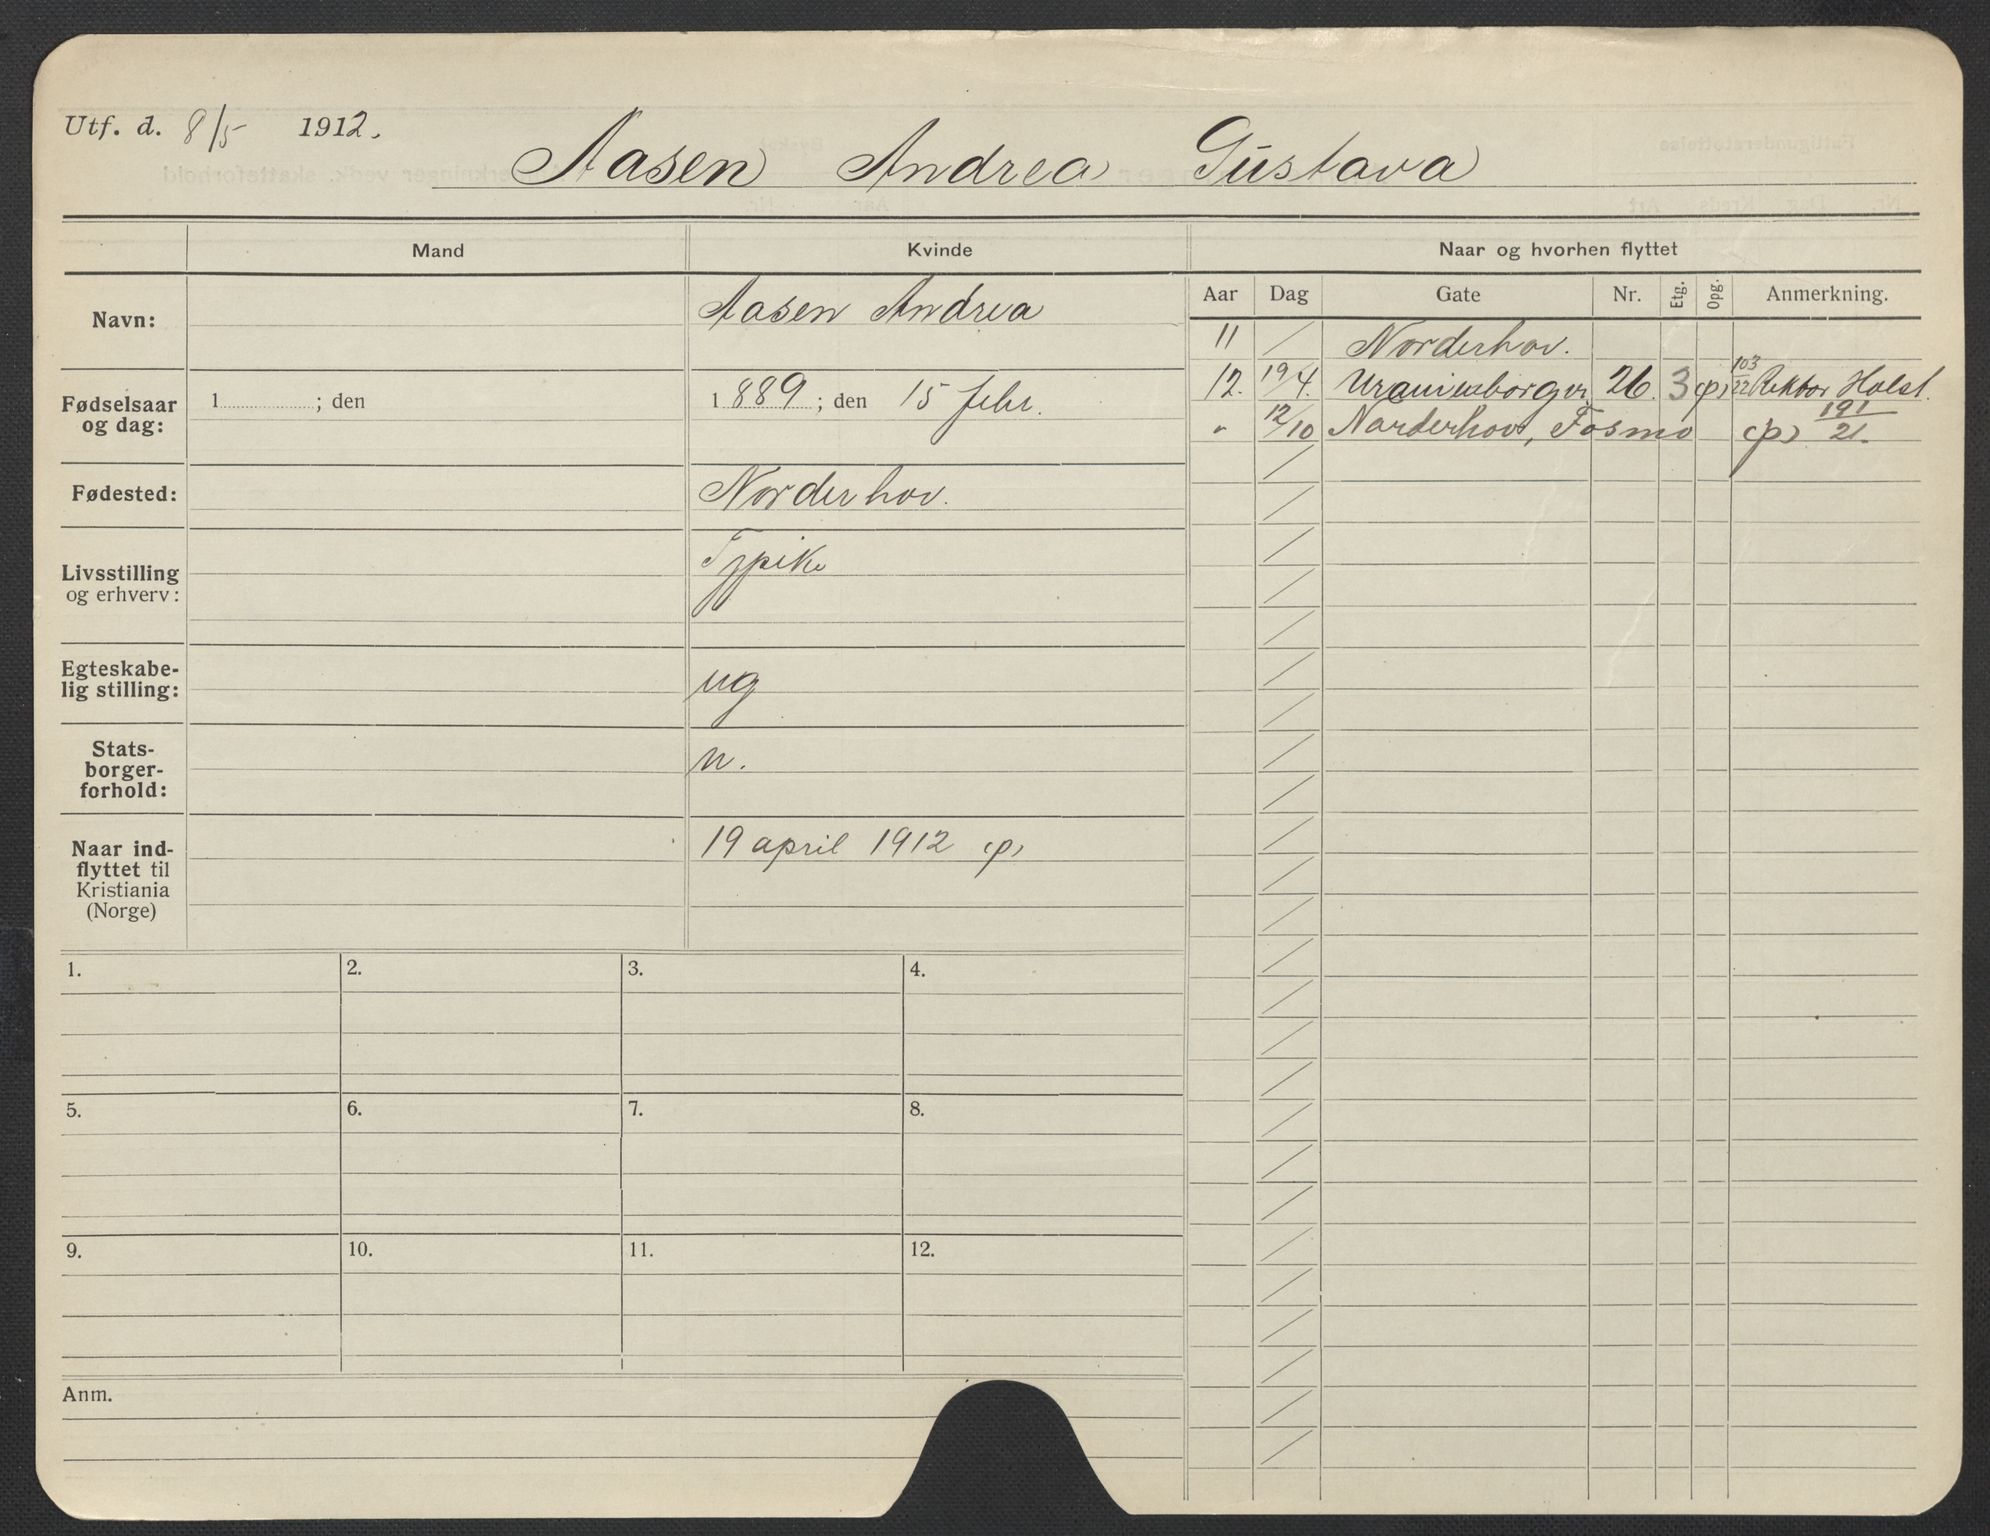 Utf. d. 8/5 1912.
Aasen Andrea Gustava
Mand Kvinde Naar og hvorhen flyttet
Navn: Aasen Andrea
Fødselsaar og dag: 1 ; den 1889 ; den 15 febr.
Fødested: Norderhov.
Livsstilling og erhverv: Tjpike
Egteskabe-
lig stilling: ug
Stats-
borger-
forhold: n.
Naar ind-
flyttet til
Kristiania
(Norge) 19 april 1912 (p)
Aar Dag Gate Nr. Etg. Opg. Anmerkning.
11 / Norderhov.
12. 19/4. Uranienborgv. 26. 3 (p) 103/22 Rektor Holst.
" 12/10 Norderhov, Fosmo (p) 191/21.
1. 2. 3. 4.
5. 6. 7. 8.
9. 10. 11. 12.
Anm.